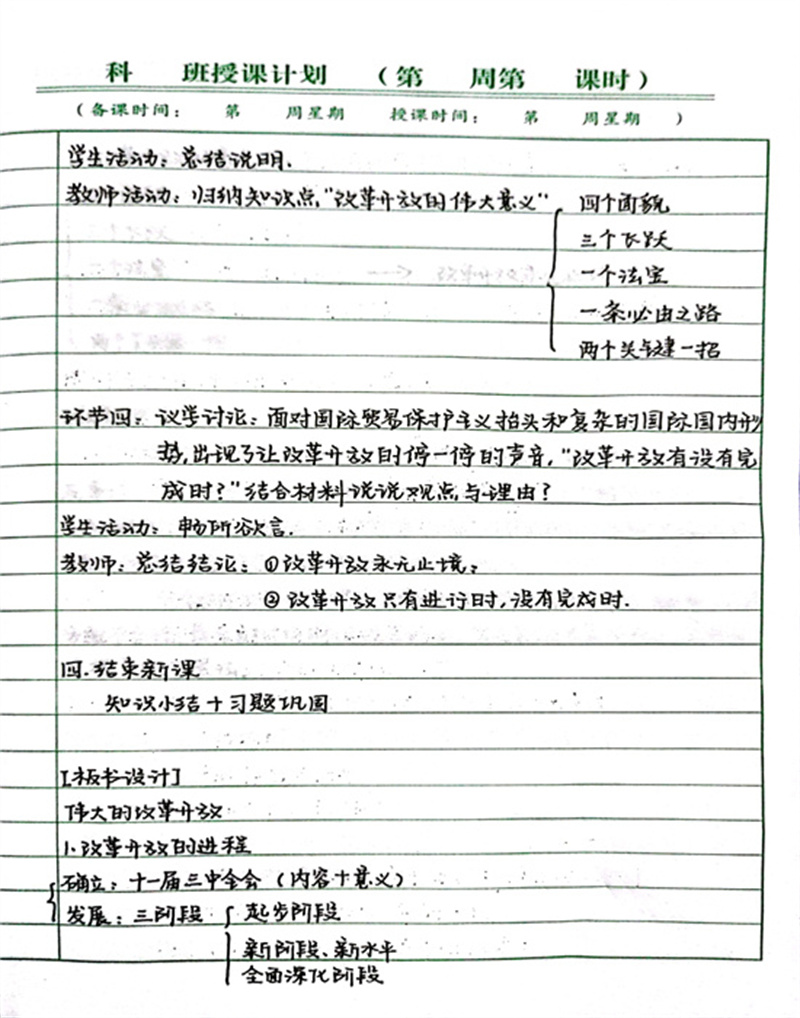 科 班授课计划 （第 周第 课时）
（备课时间： 第 周星期 授课时间： 第 周星期 ）
学生活动：总结说明.
教师活动：归纳知识点"改革开放的伟大意义" 四个面貌
三个飞跃
一个法宝
一条必由之路
两个关键一招
环节四：议学讨论：面对国际贸易保护主义抬头和复杂的国际国内形
势,出现了让改革开放的停一停的声音,"改革开放有没有完
成时?"结合材料说说观点与理由?
学生活动：畅所欲言.
教师：总结结论：①改革开放永无止境;
②改革开放只有进行时,没有完成时.
四.结束新课
知识小结+习题巩固
[板书设计]
伟大的改革开放
1.改革开放的进程
确立：十一届三中全会（内容+意义）
发展：三阶段 起步阶段
新阶段、新水平
全面深化阶段